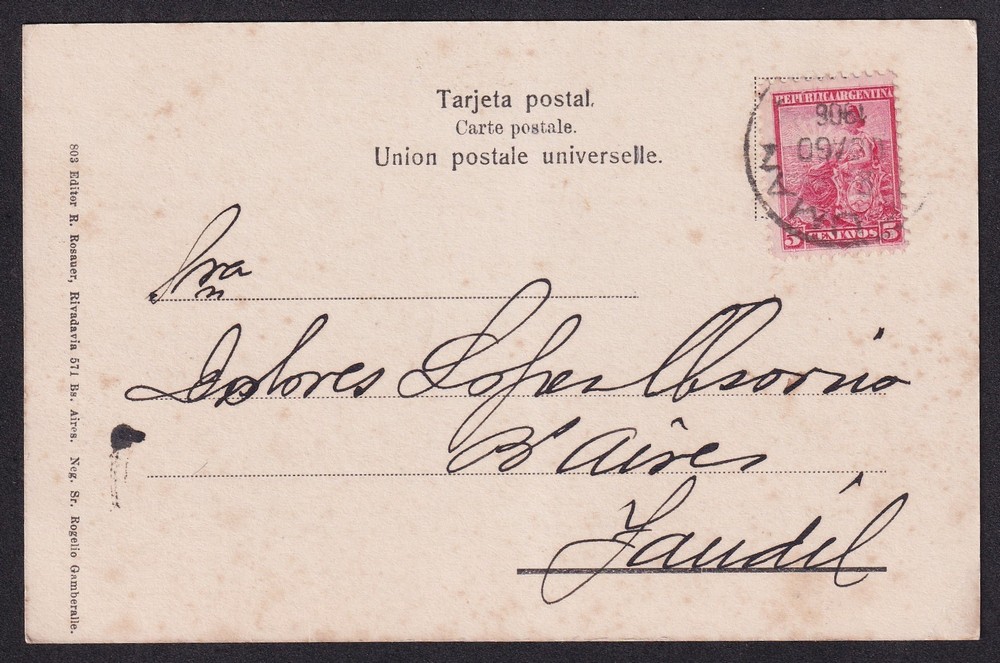 Tarjeta postal.
Carte postale.
Union postale universelle.
REPUBLICA ARGENTINA
5 CENTAVOS 5
1906
Sra
Dolores Lopez Osorio
Bs Aires
Tandil
803 Editor R. Rosauer, Rivadavia 571 Bs. Aires. Neg. Sr. Rogelio Gamberalle.